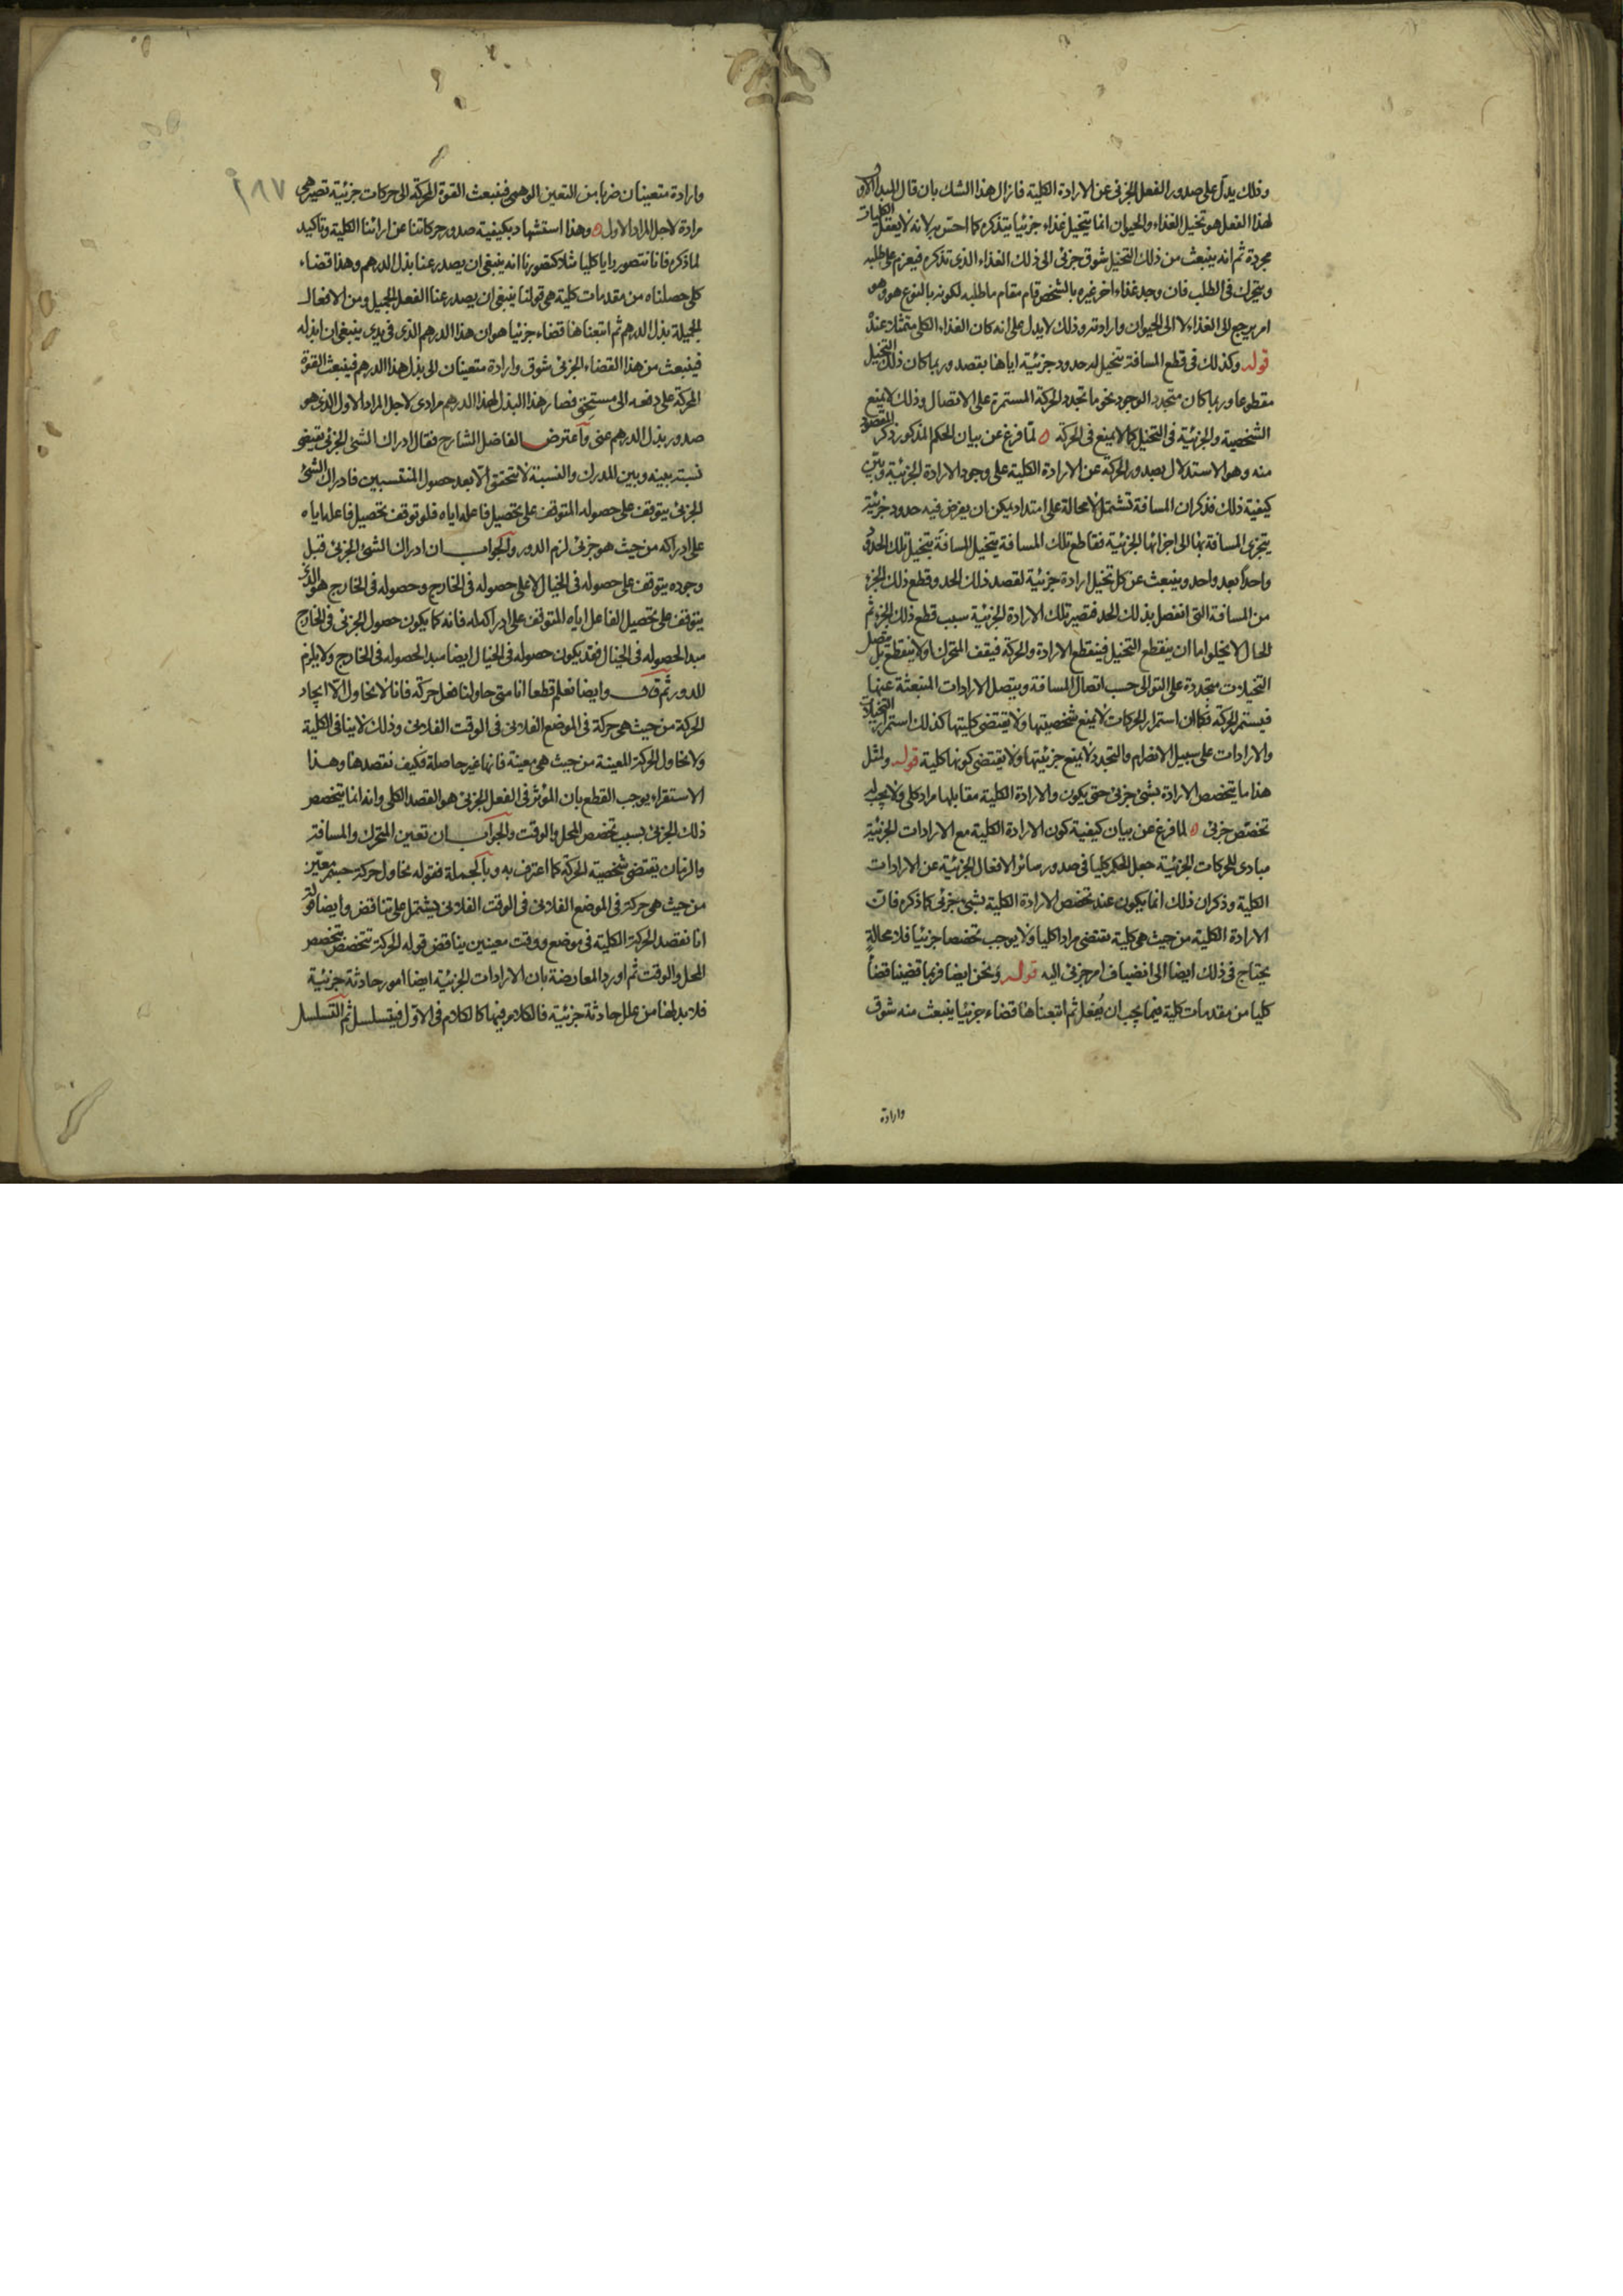 وذلك يدل على صدور الفعل الجزئى عن الارادة الكلية فازال هذا الشك بان قال المبدا الاول
لهذا الفعل هو تخيل الغذاء والحيوان انما يتخيل غذاء جزئيا يتذكره كما احس به لانه لا يعقل الكليات
مجردة ثم انه ينبعث من ذلك التخيل شوق جزئى الى ذلك الغذاء الذى تذكره فيعزم على طلبه
ويتحرك فى الطلب فان وجد غذاء اخر غيره بالشخص قام مقام ما طلبه لكونه بالنوع هو وهو
امر يرجع الى الغذاء لا الى الحيوان وارادته وذلك لا يدل على انه كان الغذاء الكلى متمثلا عنده
قوله وكذلك فى قطع المسافة يتخيل له حدود جزئية اياها يقصد وربما كان ذلك التخيل
مقطوعا وربما كان متجدد الوجود نحو ما تجدد الحركة المستمرة على الاتصال وذلك لا يمنع
الشخصية والجزئية فى التخيل كما لا يمنع فى الحركة ه لما فرغ عن بيان الحكم المذكور ذكر المقصود
منه وهو الاستدلال بصدور الحركة عن الارادة الكلية على وجود الارادة الجزئية وبين
كيفية ذلك فذكر ان المسافة تشتمل لا محالة على امتداد يمكن ان يفرض فيه حدود جزئية
يتجزى المسافة بها الى اجزائها الجزئية فقاطع تلك المسافة يتخيل المسافة يتخيل تلك الحدود
واحدا بعد واحد وينبعث عن كل تخيل ارادة جزئية لقصد ذلك الحد وقطع ذلك الجزء
من المسافة التى انفصل بذلك الحد فتصير تلك الارادة الجزئية سبب قطع ذلك الجزء ثم
الحال لا يخلوا ما ان ينقطع التخيل فينقطع الارادة والحركة فيقف المتحرك او لا ينقطع بل يتصل
التخيلات متجددة على التوالى حسب اتصال المسافة ويتصل الارادات المنبعثة عنها
فيستمر الحركة فكما ان استمرار الحركات لا يمنع شخصيتها ولا يقتضى كليتها كذلك استمرار التخيلات
والارادات على سبيل الانصرام والتجدد لا يمنع جزئيتها ولا يقتضى كونها كلية قوله ولمثل
هذا ما يتخصص الارادة بشئ جزئى حتى يكون والارادة الكلية مقابلها مراد كلى ولا يجب له
تخصص جزئى ه لما فرغ عن بيان كيفية كون الارادة الكلية مع الارادات الجزئية
مبادى للحركات الجزئية جعل الحكم كليا فى صدور سائر الافعال الجزئية عن الارادات
الكلية وذكر ان ذلك انما يكون عند تخصص الارادة الكلية بشئ جزئى كما ذكره فان
الارادة الكلية من حيث هى كلية تقتضى مرادا كليا ولا يوجب تخصصا جزئيا فلا محالة
يحتاج فى ذلك ايضا الى انضياف امر جزئى اليه قوله ونحن ايضا فربما قضينا قضاء
كليا من مقدمات كلية فيما يجب ان يفعل ثم اتبعناها قضاء جزئيا ينبعث منه شوق
وارادة
٢٨٧
وارادة متعينان ضربا من التعين الوهمى فينبعث القوة المحركة الى حركات جزئية تصير هى
مرادة لاجل المراد الاول ه وهذا استشهاد بكيفية صدور حركاتنا عن ارائنا الكلية وتاكيد
لما ذكره فانا نتصور رايا كليا مثلا كتصورنا انه ينبغى ان يصدر عنا بذل الدرهم وهذا قضاء
كلى حصلناه من مقدمات كلية هى قولنا ينبغى ان يصدر عنا الفعل الجميل ومن الافعال
الجميلة بذل الدرهم ثم اتبعناها قضاء جزئيا هو ان هذا الدرهم الذى فى يدى ينبغى ان ابذله
فينبعث من هذا القضاء الجزئى شوق وارادة متعينان الى بذل هذا الدرهم فينبعث القوة
المحركة على دفعه الى مستحق فصار هذا البذل لهذا الدرهم مرادى لاجل المراد الاول الذى هو
صدور بذل الدرهم عنى واعترض الفاضل الشارح فقال ادراك الشئ الجزئى يقتضى
نسبة بينه وبين المدرك والنسبة لا تتحقق الا بعد حصول المنتسبين فادراك الشئ
الجزئى يتوقف على حصوله المتوقف على تحصيل فاعله اياه فلو توقف تحصيل فاعله اياه
على ادراكه من حيث هو جزئى لزم الدور والجواب ان ادراك الشئ الجزئى قبل
وجوده يتوقف على حصوله فى الخيال لا على حصوله فى الخارج وحصوله فى الخارج هو الذى
يتوقف على تحصيل الفاعل اياه المتوقف على ادراكه له فانه كما يكون حصول الجزئى فى الخارج
مبدا لحصوله فى الخيال فقد يكون حصوله فى الخيال ايضا مبدا لحصوله فى الخارج ولا يلزم
الدور ثم قال وايضا نعلم قطعا انا متى حاولنا فعل حركة فانا لا نحاول الا ايجاد
الحركة من حيث هى حركة فى الموضع الفلانى فى الوقت الفلانى وذلك لا ينافى الكلية
ولا نحاول الحركة المعينة من حيث هى معينة فانها غير حاصلة فكيف نقصدها وهذا
الاستقراء يوجب القطع بان المؤثر فى الفعل الجزئى هو القصد الكلى وانه انما يتخصص
ذلك الجزئى بسبب تخصص المحل والوقت والجواب ان تعين المتحرك والمسافة
والزمان يقتضى شخصية الحركة كما اعترف به وبالجملة فقوله نحاول حركة جسم معين
من حيث هى حركة فى الموضع الفلانى فى الوقت الفلانى يشتمل على تناقض وايضا قوله
انا نقصد الحركة الكلية فى موضع ووقت معينين يناقض قوله الحركة تتخصص بتخصص
المحل والوقت ثم اورد المعارضة بان الارادات الجزئية ايضا امور حادثة جزئية
فلا بد لها من علل حادثة جزئية فالكلام فيها كالكلام فى الاول فيتسلسل ثم التسلسل